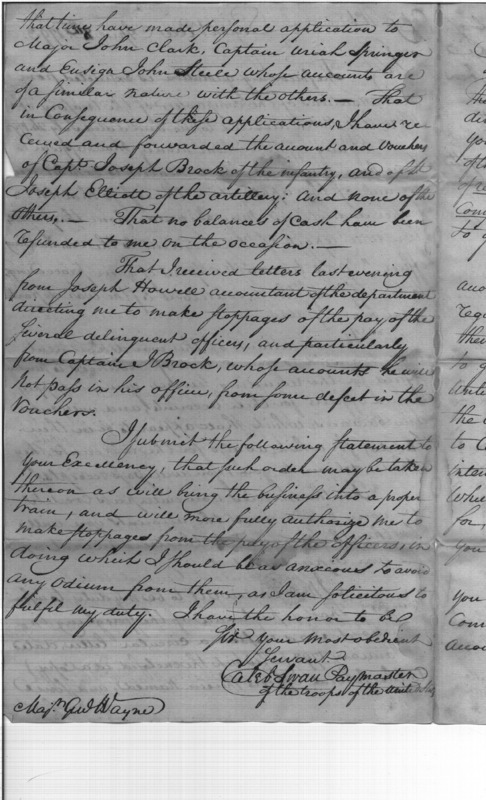 that time have made personal application to
Major John Clark, Captain Uriah Springer
and Ensign John Steele whose accounts are
of a similar nature with the others. — That
in Consequence of these applications, I have re
ceived and forwarded the account and vouchers
of Capt. Joseph Brock of the infantry, and of Lt
Joseph Elliott of the artillery; and none of the
others. — That no balances of cash have been
refunded to me on the occasion. —
That I received letters last evening
from Joseph Howell accountant of the department
directing me to make stoppages of the pay of the
several delinquent officers, and particularly
from Captain J Brock, whose accounts he will
not pass in his office, from some defect in the
Vouchers.
I submit the following statement to
your Excellency, that such order may be taken
thereon as will bring the business into a proper
train, and will more fully authorize me to
make stoppages from the pay of the officers, in
doing which I should be as anxious to avoid
any odium from them, as I am solicitous to
fulfil my duty. I have the honor to be
Sir your most obedient
Servant
Caleb Swan Paymaster
of the troops of the
Majr. Genl Wayne